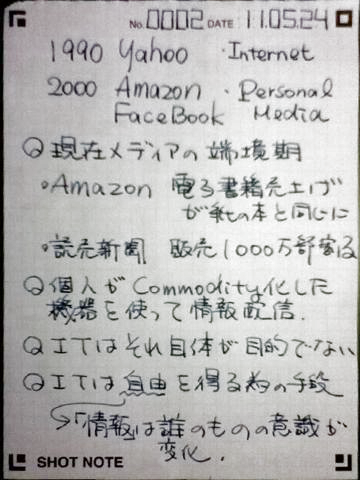 No. 0002 DATE 11.05.24
1990 Yahoo ・Internet
2000 Amazon ・Personal
FaceBook Media
現在メディアの端境期
・Amazon 電子書籍売上げ
が紙の本と同じに
・読売新聞 販売1000万部割る
個人がCommodity化した
機器を使って情報配信.
ITはそれ自体が目的でない
ITは自由を得る為の手段
→「情報」は誰のものの意識が
変化.
SHOT NOTE